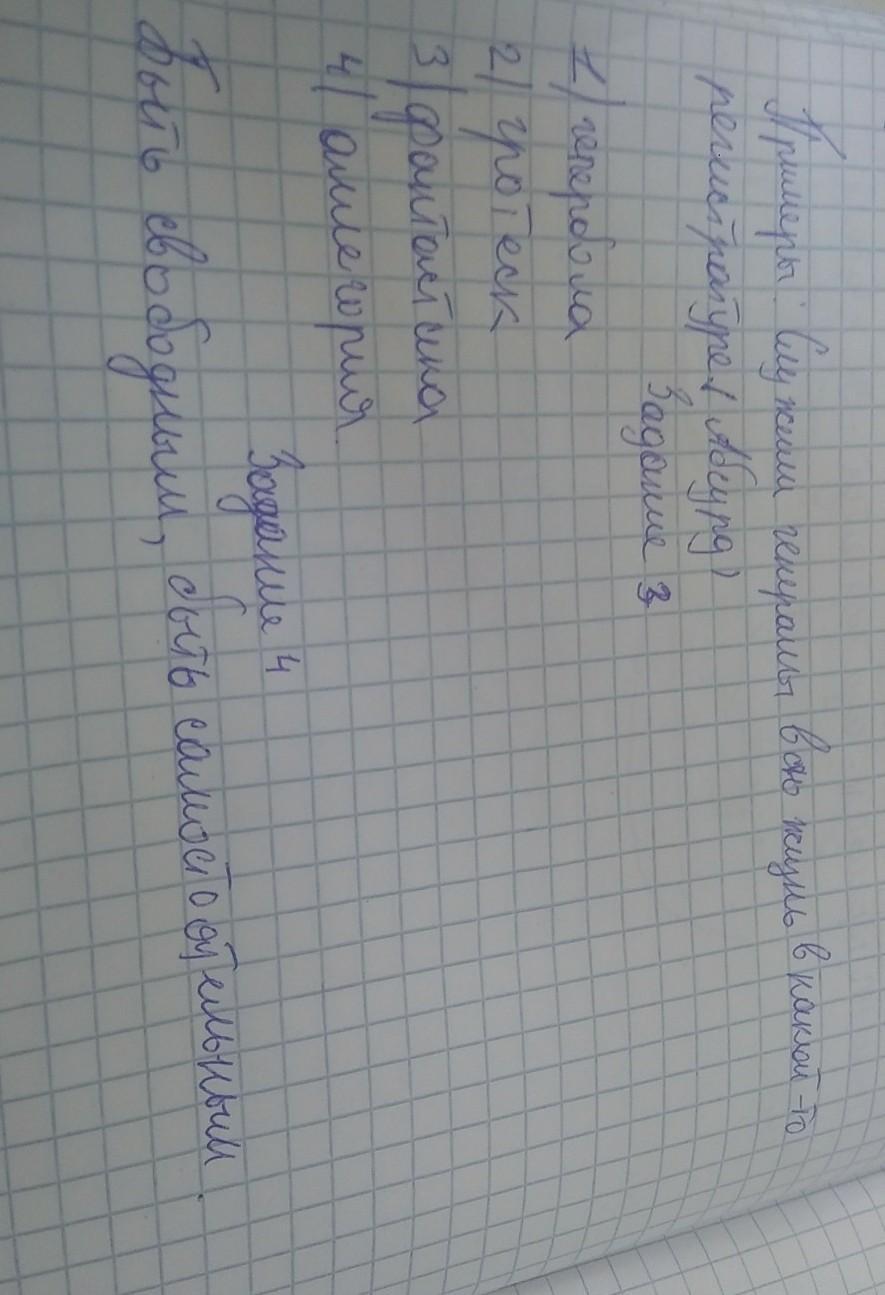 Примеры: Служили генералы всю жизнь в какой-то
регистратуре. (Абсурд)
Задание 3
1) гепербола
2) гротеск
3) фантастика
4) аллегория
Задание 4
Быть свободным, быть самостоятельным.